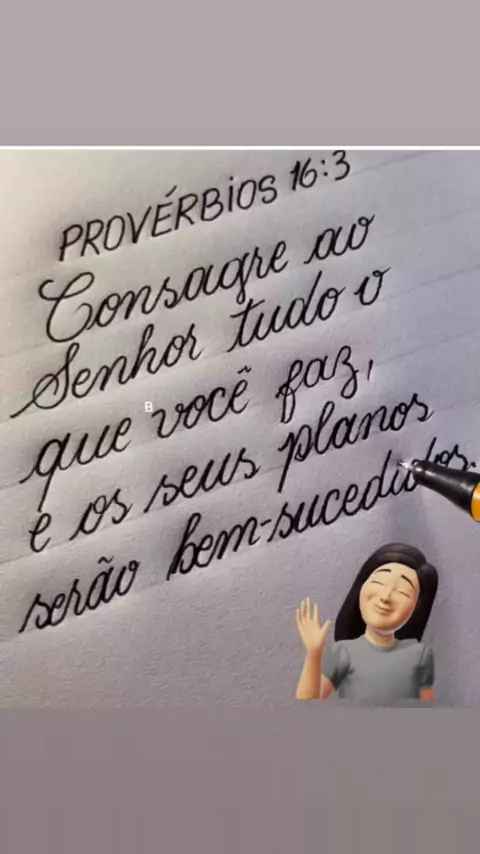 PROVÉRBIOS 16:3
Consagre ao
Senhor tudo o
que você faz,
e os seus planos
serão bem-sucedidos.
B